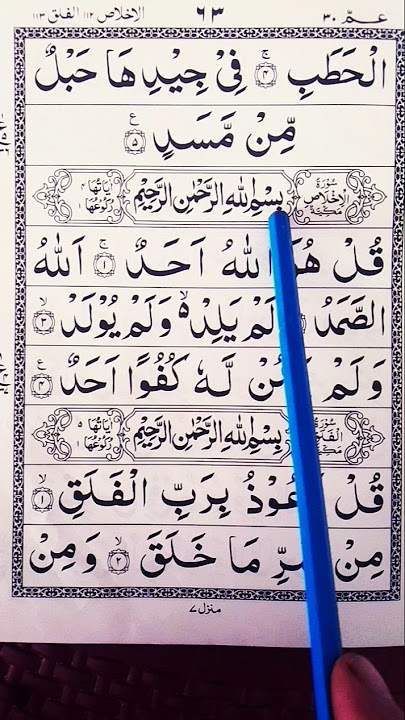 عـمّ ٣٠ ٦٣ الاخلاص ١١٢ الفلق ١١٣
الْحَطَبِ ۚ﴿۴﴾ فِیْ جِیْدِهَا حَبْلٌ
مِّنْ مَّسَدٍ ﴿۵﴾ ع
سُوْرَةُ الْاِخْلَاصِ مَكِّيَّةٌ بِسْمِ اللّٰهِ الرَّحْمٰنِ الرَّحِیْمِ اٰیَاتُهَا ۴ رُكُوْعُهَا ۱
قُلْ هُوَ اللّٰهُ اَحَدٌ ۚ﴿۱﴾ اَللّٰهُ
الصَّمَدُ لَمْ یَلِدْ ۙ۬ وَلَمْ یُوْلَدْ ۙ﴿۳﴾
وَلَمْ یَكُنْ لَّهٗ كُفُوًا اَحَدٌ ﴿۴﴾ ع
سُوْرَةُ الْفَلَقِ بِسْمِ اللّٰهِ الرَّحْمٰنِ الرَّحِیْمِ اٰیَاتُهَا ۵ رُكُوْعُهَا ۱
قُلْ اَعُوْذُ بِرَبِّ الْفَلَقِ ۙ﴿۱﴾
مِنْ شَرِّ مَا خَلَقَ ۙ﴿۲﴾ وَمِنْ
منزل ۷